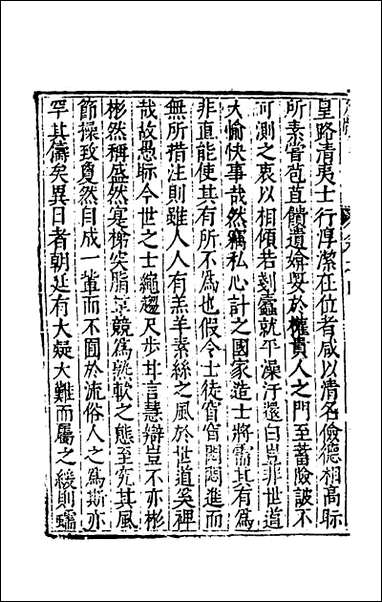 皇路清夷士行淳潔在位者咸以清名儉德相高眎
所素嘗苞苴餽遺媕娿於權貴人之門至蓄險詖不
可測之衷以相傾若剗蠹就平澡汙還白豈非世道
大愉快事哉然竊私心計之國家造士將需其有為
非直能使其有所不為也假令士徒窅窅悶悶進而
無所措注則雖人人有羔羊素絲之風於世道奚裨
哉故愚眎今世之士繩趨尺步甘言慧辯豈不亦彬
彬然稱盛然宴榆突脂享競為骫軟之態至究其風
節操致夐然自成一輩而不囿於流俗人之為斯亦
罕其儔矣異日者朝廷有大疑大難而屬之緩則蠕